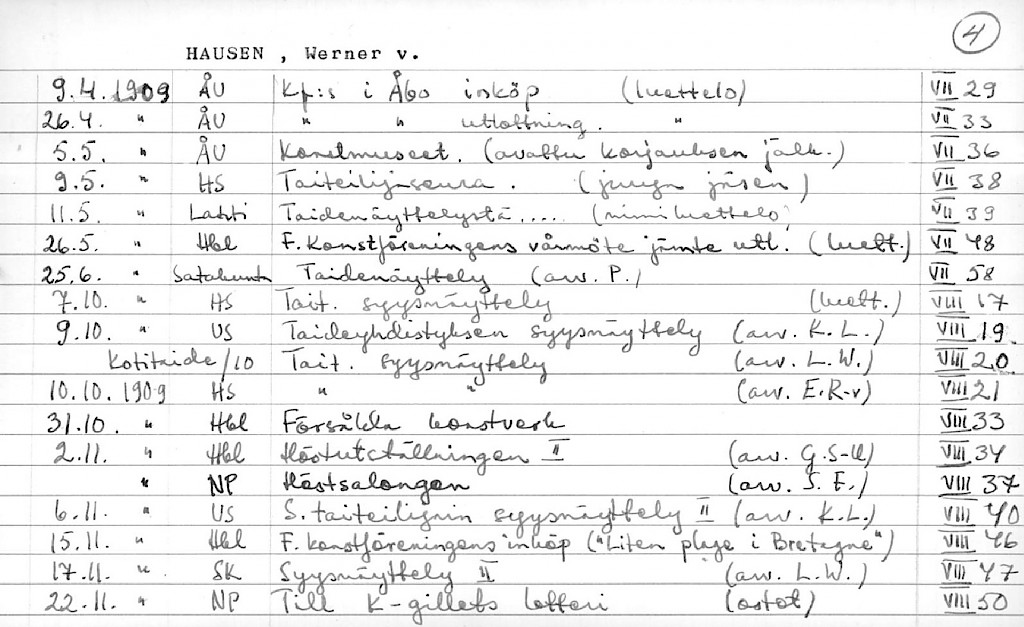 4
HAUSEN , Werner v.
9.4. 1909 ÅU Kf:s i Åbo inköp (luettelo) VII 29
26.4. " ÅU " " utlottning. " VII 33
5.5. " ÅU Konstmuseet. (avattu korjauksen jälk.) VII 36
9.5. " HS Taiteilijaseura. ( jäsen) VII 38
11.5. " Lahti Taidenäyttelystä ..... (nimiluettelo) VII 39
26.5. " Hbl F. Konstföreningens vårmöte jämte utl. (luett.) VII 48
25.6. " Satakunta Taidenäyttely (arv. P.) VII 58
7.10. " HS Tait. syysnäyttely (luett.) VIII 17
9.10. " US Taideyhdistyksen syysnäyttely (arv. K.L.) VIII 19
Kotitaide/10 Tait. syysnäyttely (arv. L.W.) VIII 20
10.10. 1909 HS " " (arv. E.R-v) VIII 21
31.10. " Hbl Försålda konstverk VIII 33
2.11. " Hbl Höstutställningen II (arv. G.S-ll) VIII 34
" NP Höstsalongen (arv. S.F.) VIII 37
6.11. " US S. taiteilijain syysnäyttely II (arv. K.L.) VIII 40
15.11. " Hbl F. konstföreningens inköp ("Liten plage i Bretagne") VIII 46
17.11. " SK Syysnäyttely II (arv. L.W.) VIII 47
22.11. " NP Till K-gillets lotteri (ostot) VIII 50